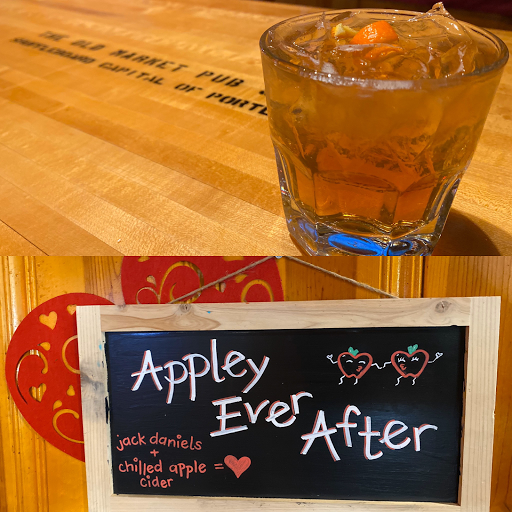 THE OLD MARKET PUB
SHUFFLEBOARD CAPITAL OF
Appley
Ever
After
jack daniels
+
chilled apple =
cider